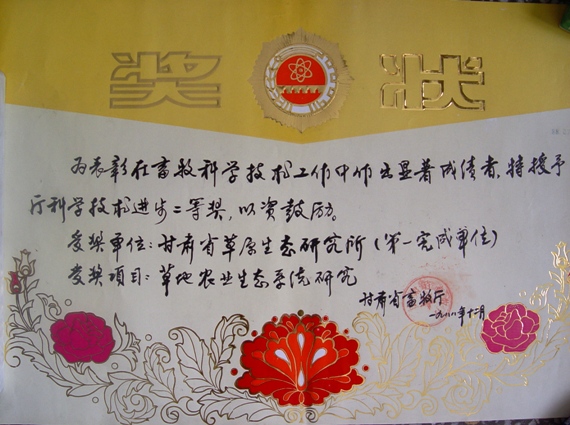 奖状
为表彰在畜牧科学技术工作中作出显著成绩者，特授予
厅科学技术进步二等奖，以资鼓励。
受奖单位：甘肃省草原生态研究所（第一完成单位）
受奖项目：草地农业生态系统研究
甘肃省畜牧厅
一九八八年十二月